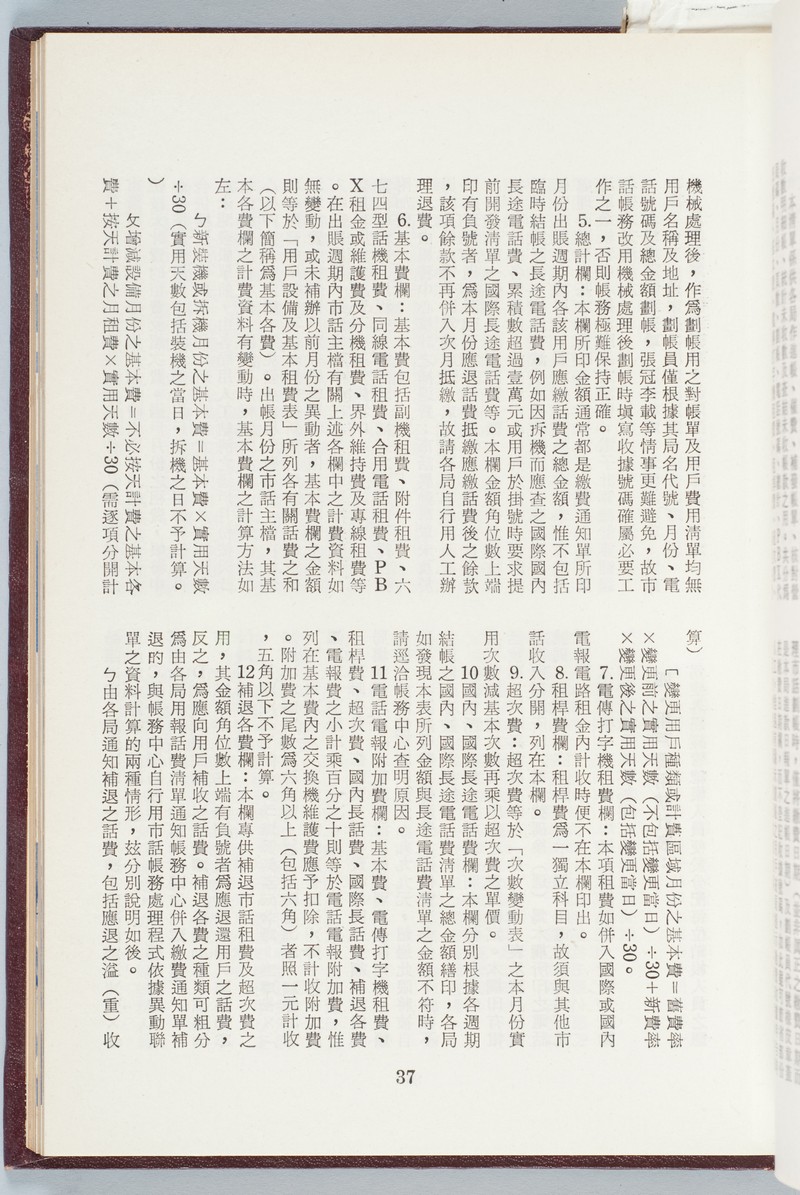 機械處理後，作爲劃帳用之對帳單及用戶費用清單均無
用戶名稱及地址，劃帳員僅根據其局名代號、月份、電
話號碼及總金額劃帳，張冠李載等情事更難避免，故市
話帳務改用機械處理後劃帳時塡寫收據號碼確屬必要工
作之一，否則帳務極難保持正確。
5.總計欄：本欄所印金額通常都是繳費通知單所印
月份出賬週期內各該用戶應繳話費之總金額，惟不包括
臨時結帳之長途電話費，例如因拆機而應查之國際國內
長途電話費、累積數超過壹萬元或用戶於掛號時要求提
前開發清單之國際長途電話費等。本欄金額角位數上端
印有負號者，爲本月份應退話費抵繳應繳話費後之餘款
，該項餘款不再併入次月抵繳，故請各局自行用人工辦
理退費。
6.基本費欄：基本費包括副機租費、附件租費、六
七四型話機租費、同線電話租費、合用電話租費、PB
X租金或維護費及分機租費、界外維持費及專線租費等
。在出賬週期內市話主檔有關上述各欄中之計費資料如
無變動，或未補辦以前月份之異動者，基本費欄之金額
則等於「用戶設備及基本租費表」所列各有關話費之和
（以下簡稱爲基本各費）。出帳月份之市話主檔，其基
本各費欄之計費資料有變動時，基本費欄之計算方法如
左：
ㄅ新裝機或拆機月份之基本費＝基本費×實用天數
÷30（實用天數包括裝機之當日，拆機之日不予計算。
）
ㄆ增減設備月份之基本費＝不必按天計費之基本各
費＋按天計費之月租費×實用天數÷30（需逐項分開計
算）
ㄈ變更用戶種類或計費區域月份之基本費＝舊費率
×變更前之實用天數（不包括變更當日）÷30＋新費率
×變更後之實用天數（包括變更當日）÷30。
7.電傳打字機租費欄：本項租費如併入國際或國內
電報電路租金內計收時便不在本欄印出。
8.租桿費欄：租桿費爲一獨立科目，故須與其他市
話收入分開，列在本欄。
9.超次費：超次費等於「次數變動表」之本月份實
用次數減基本次數再乘以超次費之單價。
10國內、國際長途電話費欄：本欄分別根據各週期
結帳之國內、國際長途電話費清單之總金額繕印，各局
如發現本表所列金額與長途電話費清單之金額不符時，
請逕洽帳務中心查明原因。
11電話電報附加費欄：基本費、電傳打字機租費、
租桿費、超次費、國內長話費、國際長話費、補退各費
、電報費之小計乘百分之十則等於電話電報附加費，惟
列在基本費內之交換機維護費應予扣除，不計收附加費
。附加費之尾數爲六角以上（包括六角）者照一元計收
，五角以下不予計算。
12補退各費欄：本欄專供補退市話租費及超次費之
用，其金額角位數上端有負號者爲應退還用戶之話費，
反之，爲應向用戶補收之話費。補退各費之種類可粗分
爲由各局用報話費清單通知帳務中心併入繳費通知單補
退的，與帳務中心自行用市話帳務處理程式依據異動聯
單之資料計算的兩種情形，玆分別說明如後。
ㄅ由各局通知補退之話費，包括應退之溢（重）收
37